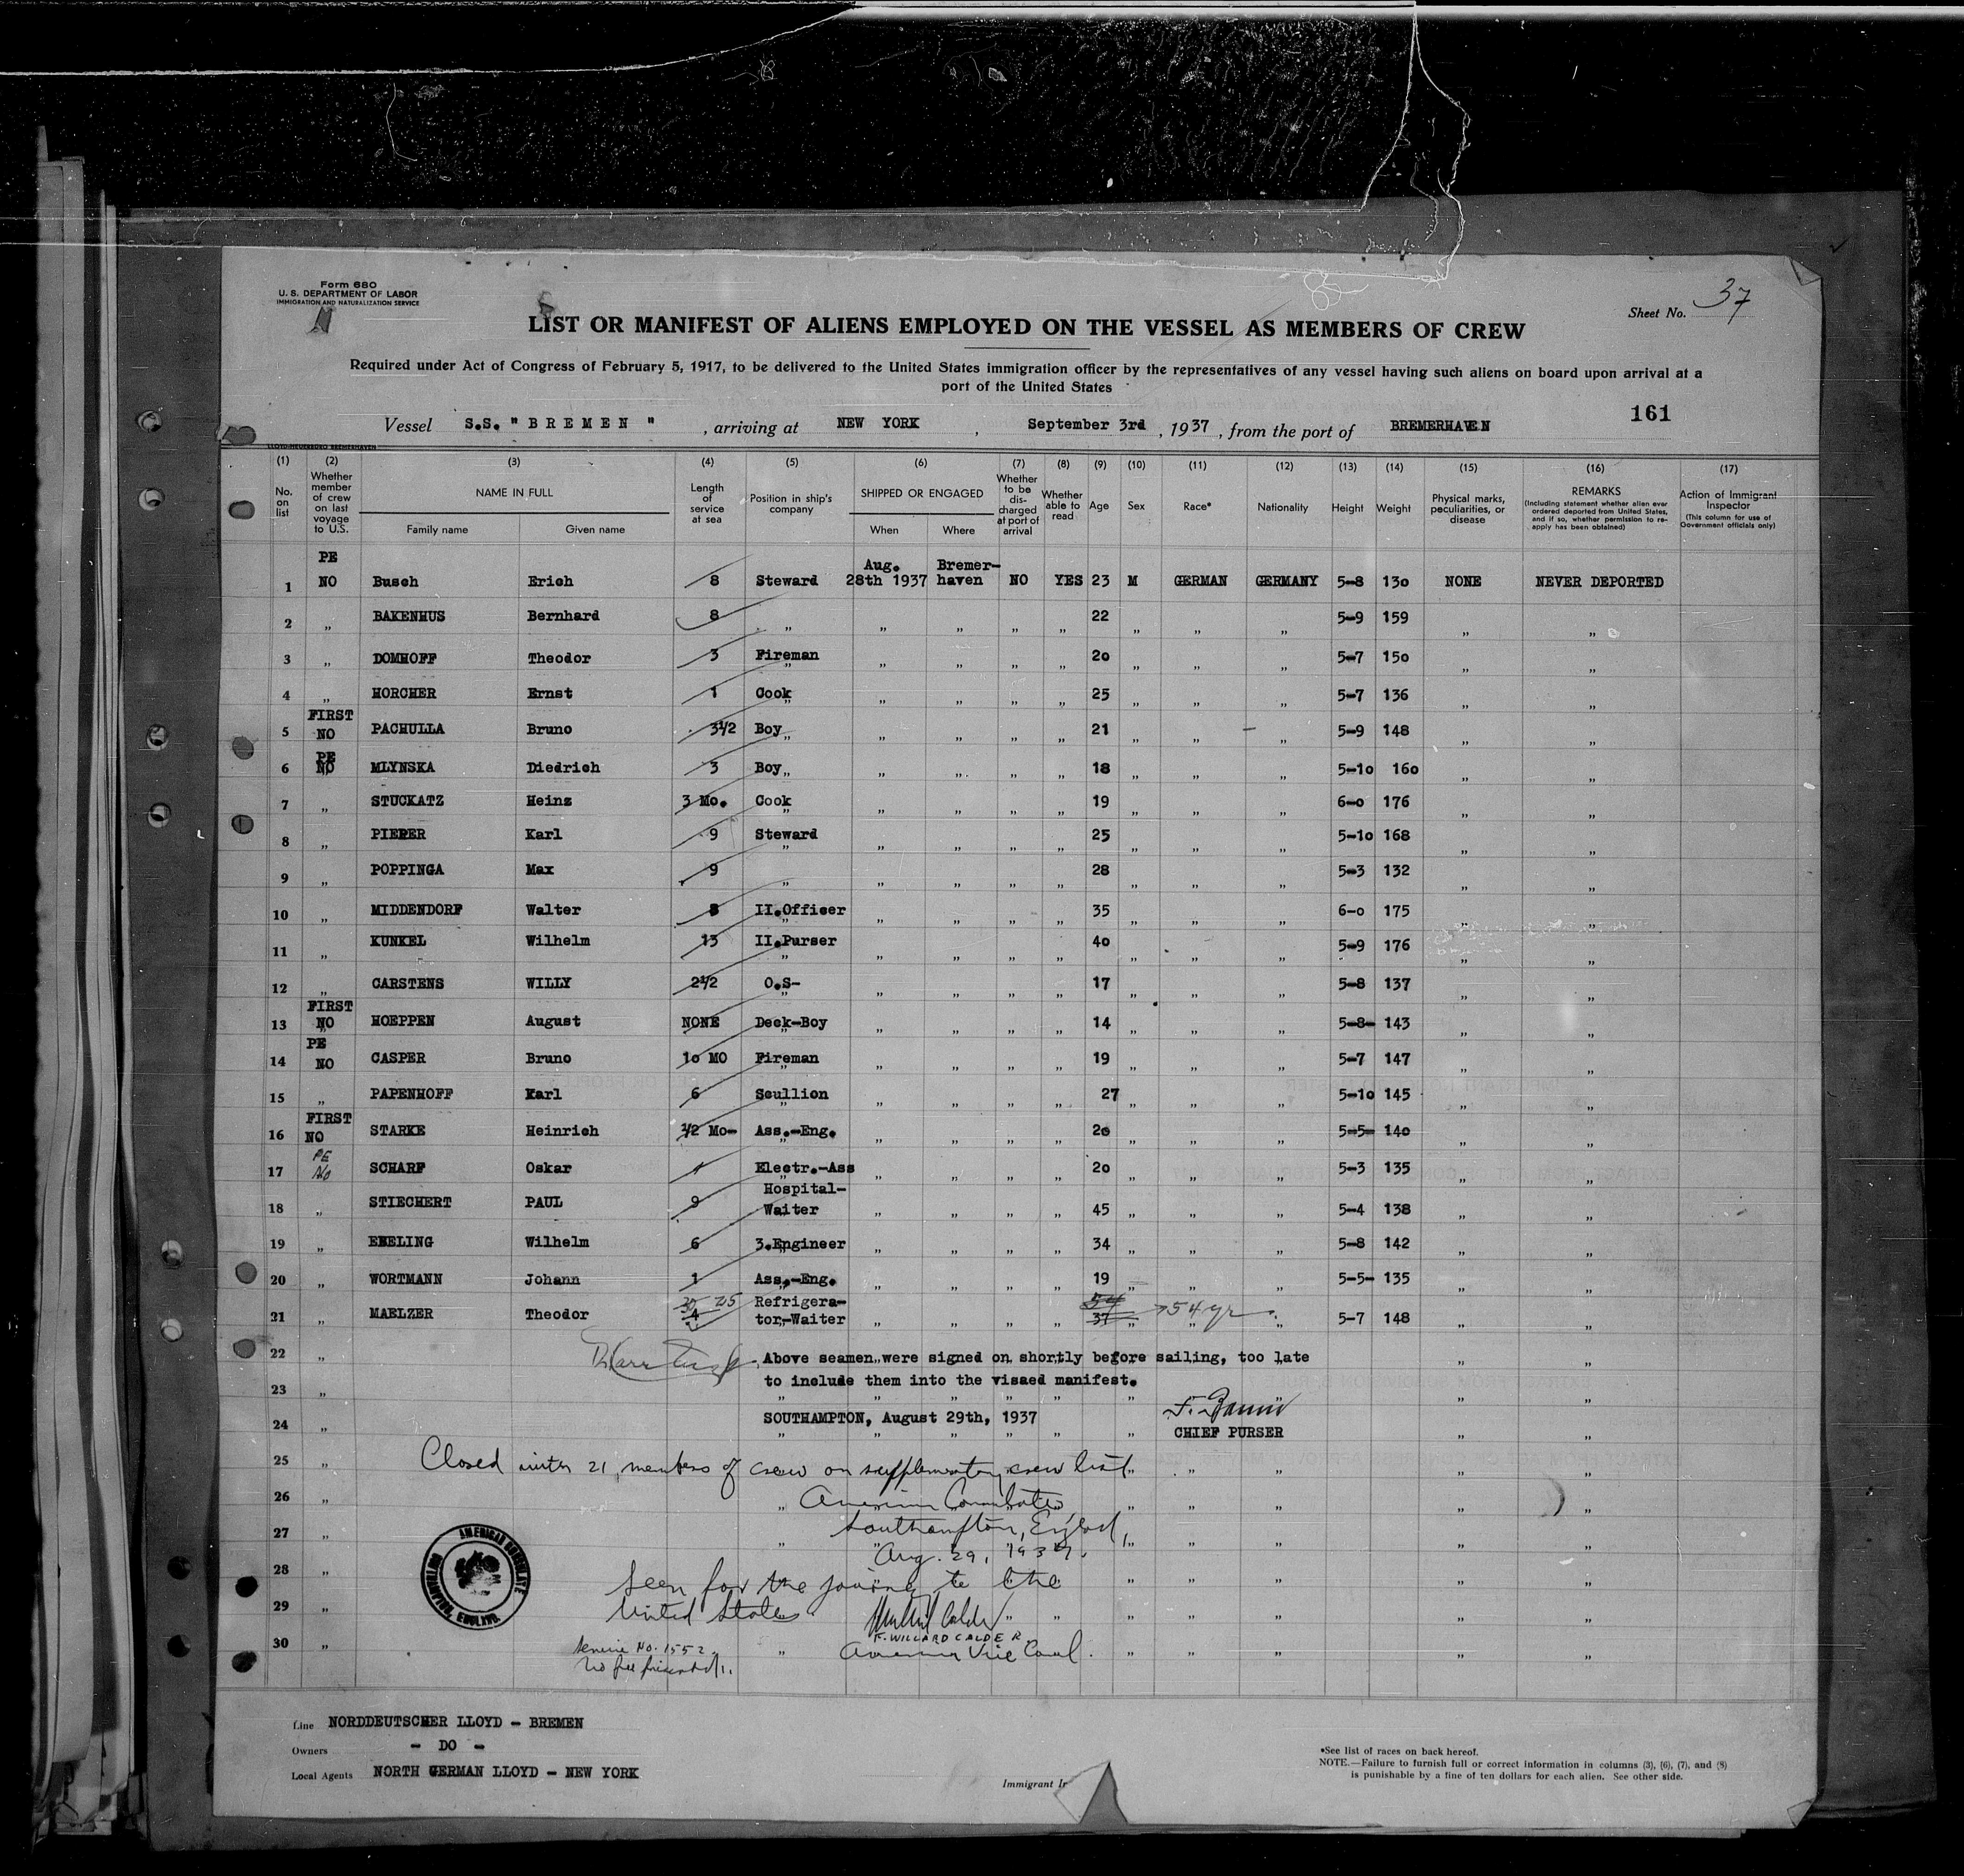 Form 680
U. S. DEPARTMENT OF LABOR
IMMIGRATION AND NATURALIZATION SERVICE
Sheet No. 37
LIST OR MANIFEST OF ALIENS EMPLOYED ON THE VESSEL AS MEMBERS OF CREW
Required under Act of Congress of February 5, 1917, to be delivered to the United States immigration officer by the representatives of any vessel having such aliens on board upon arrival at a
port of the United States
161
Vessel S.S. " B R E M E N " , arriving at NEW YORK , September 3rd , 1937 , from the port of BREMERHAVEN
(1) (2) (3) (4) (5) (6) (7) (8) (9) (10) (11) (12) (13) (14) (15) (16) (17)
No. on list
Whether member of crew on last voyage to U.S.
NAME IN FULL
Family name Given name
Length of service at sea
Position in ship's company
SHIPPED OR ENGAGED
When Where
Whether to be discharged at port of arrival
Whether able to read
Age Sex Race* Nationality Height Weight
Physical marks, peculiarities, or disease
REMARKS
(Including statement whether alien ever ordered deported from United States, and if so, whether permission to reapply has been obtained)
Action of Immigrant Inspector
(This column for use of Government officials only)
PE Aug. Bremer-
1 NO Busch Erich 8 Steward 28th 1937 haven NO YES 23 M GERMAN GERMANY 5-8 130 NONE NEVER DEPORTED
2 " BAKENHUS Bernhard 8 " " " " " 22 " " " 5-9 159 " "
3 " DOMHOFF Theodor 3 Fireman " " " " 20 " " " 5-7 150 " "
4 " HORCHER Ernst 1 Cook " " " " 25 " " " 5-7 136 " "
FIRST
5 NO PACHULLA Bruno 3½ Boy " " " " 21 " " " 5-9 148 " "
PE
6 NO MLYNSKA Diedrich 3 Boy " " " " 18 " " " 5-10 160 " "
7 " STUCKATZ Heinz 3 Mo. Cook " " " " 19 " " " 6-0 176 " "
8 " PIEPER Karl 9 Steward " " " " 25 " " " 5-10 168 " "
9 " POPPINGA Max 9 " " " " " 28 " " " 5-3 132 " "
10 " MIDDENDORF Walter 8 II.Officer " " " " 35 " " " 6-0 175 " "
11 " KUNKEL Wilhelm 13 II.Purser " " " " 40 " " " 5-9 176 " "
12 " CARSTENS WILLY 2½ O.S- " " " " 17 " " " 5-8 137 " "
FIRST
13 NO HOEPPEN August NONE Deck-Boy " " " " 14 " " " 5-8- 143 " "
PE
14 NO CASPER Bruno 10 MO Fireman " " " " 19 " " " 5-7 147 " "
15 " PAPENHOFF Karl 6 Scullion " " " " 27 " " " 5-10 145 " "
FIRST
16 NO STARKE Heinrich ½ Mo- Ass.-Eng. " " " " 20 " " " 5-5- 140 " "
PE
17 No SCHARF Oskar 1 Electr.-Ass " " " " 20 " " " 5-3 135 " "
Hospital-
18 " STIECHERT PAUL 9 Waiter " " " " 45 " " " 5-4 138 " "
19 " EBELING Wilhelm 6 3.Engineer " " " " 34 " " " 5-8 142 " "
20 " WORTMANN Johann 1 Ass.-Eng. " " " " 19 " " " 5-5- 135 " "
Refrigera- 54
21 " MAELZER Theodor 4 tor-Waiter " " " " 37 " 54 yr " 5-7 148 " "
22 " Above seamen were signed on shortly before sailing, too late " "
23 " to include them into the visaed manifest. " "
24 " SOUTHAMPTON, August 29th, 1937 " "
CHIEF PURSER
25 " Closed with 21 members of crew on supplementary crew list
26 " American Consulate
27 " Southampton, England,
Aug. 29, 1937.
28 " Seen for the journey to the
29 " United States
F. WILLARD CALDER
30 " Service No. 1552. American Vice Consul.
No fee prescribed.
AMERICAN CONSULATE
SOUTHAMPTON, ENGLAND.
Line NORDDEUTSCHER LLOYD - BREMEN
Owners - DO -
Local Agents NORTH GERMAN LLOYD - NEW YORK
Immigrant In
*See list of races on back hereof.
NOTE.—Failure to furnish full or correct information in columns (3), (6), (7), and (8)
is punishable by a fine of ten dollars for each alien. See other side.